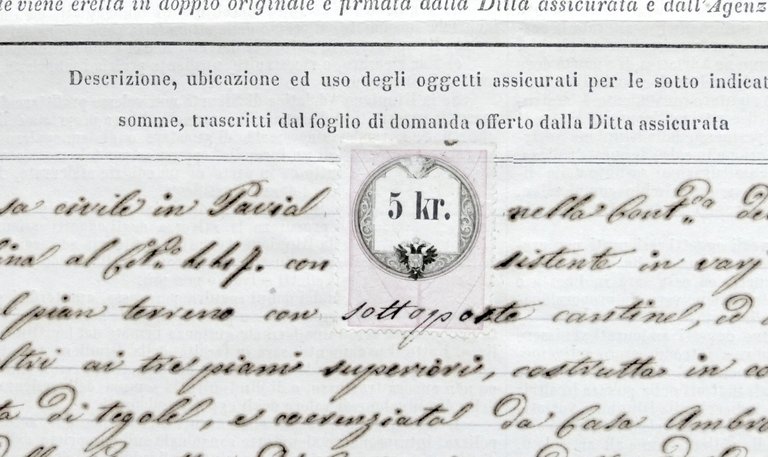 te viene eretta in doppio originale e firmata dalla Ditta assicurata e dall'Agenz
Descrizione, ubicazione ed uso degli oggetti assicurati per le sotto indicat
somme, trascritti dal foglio di domanda offerto dalla Ditta assicurata
5 kr.
sa civile in Pavia nella Cont.da de
al con sistente in varj
l pian terreno con sottoposte cantine, ed
ltri ai tre piani superiori, costrutta in co
ta di tegole, e coerenziata da Casa Ambro